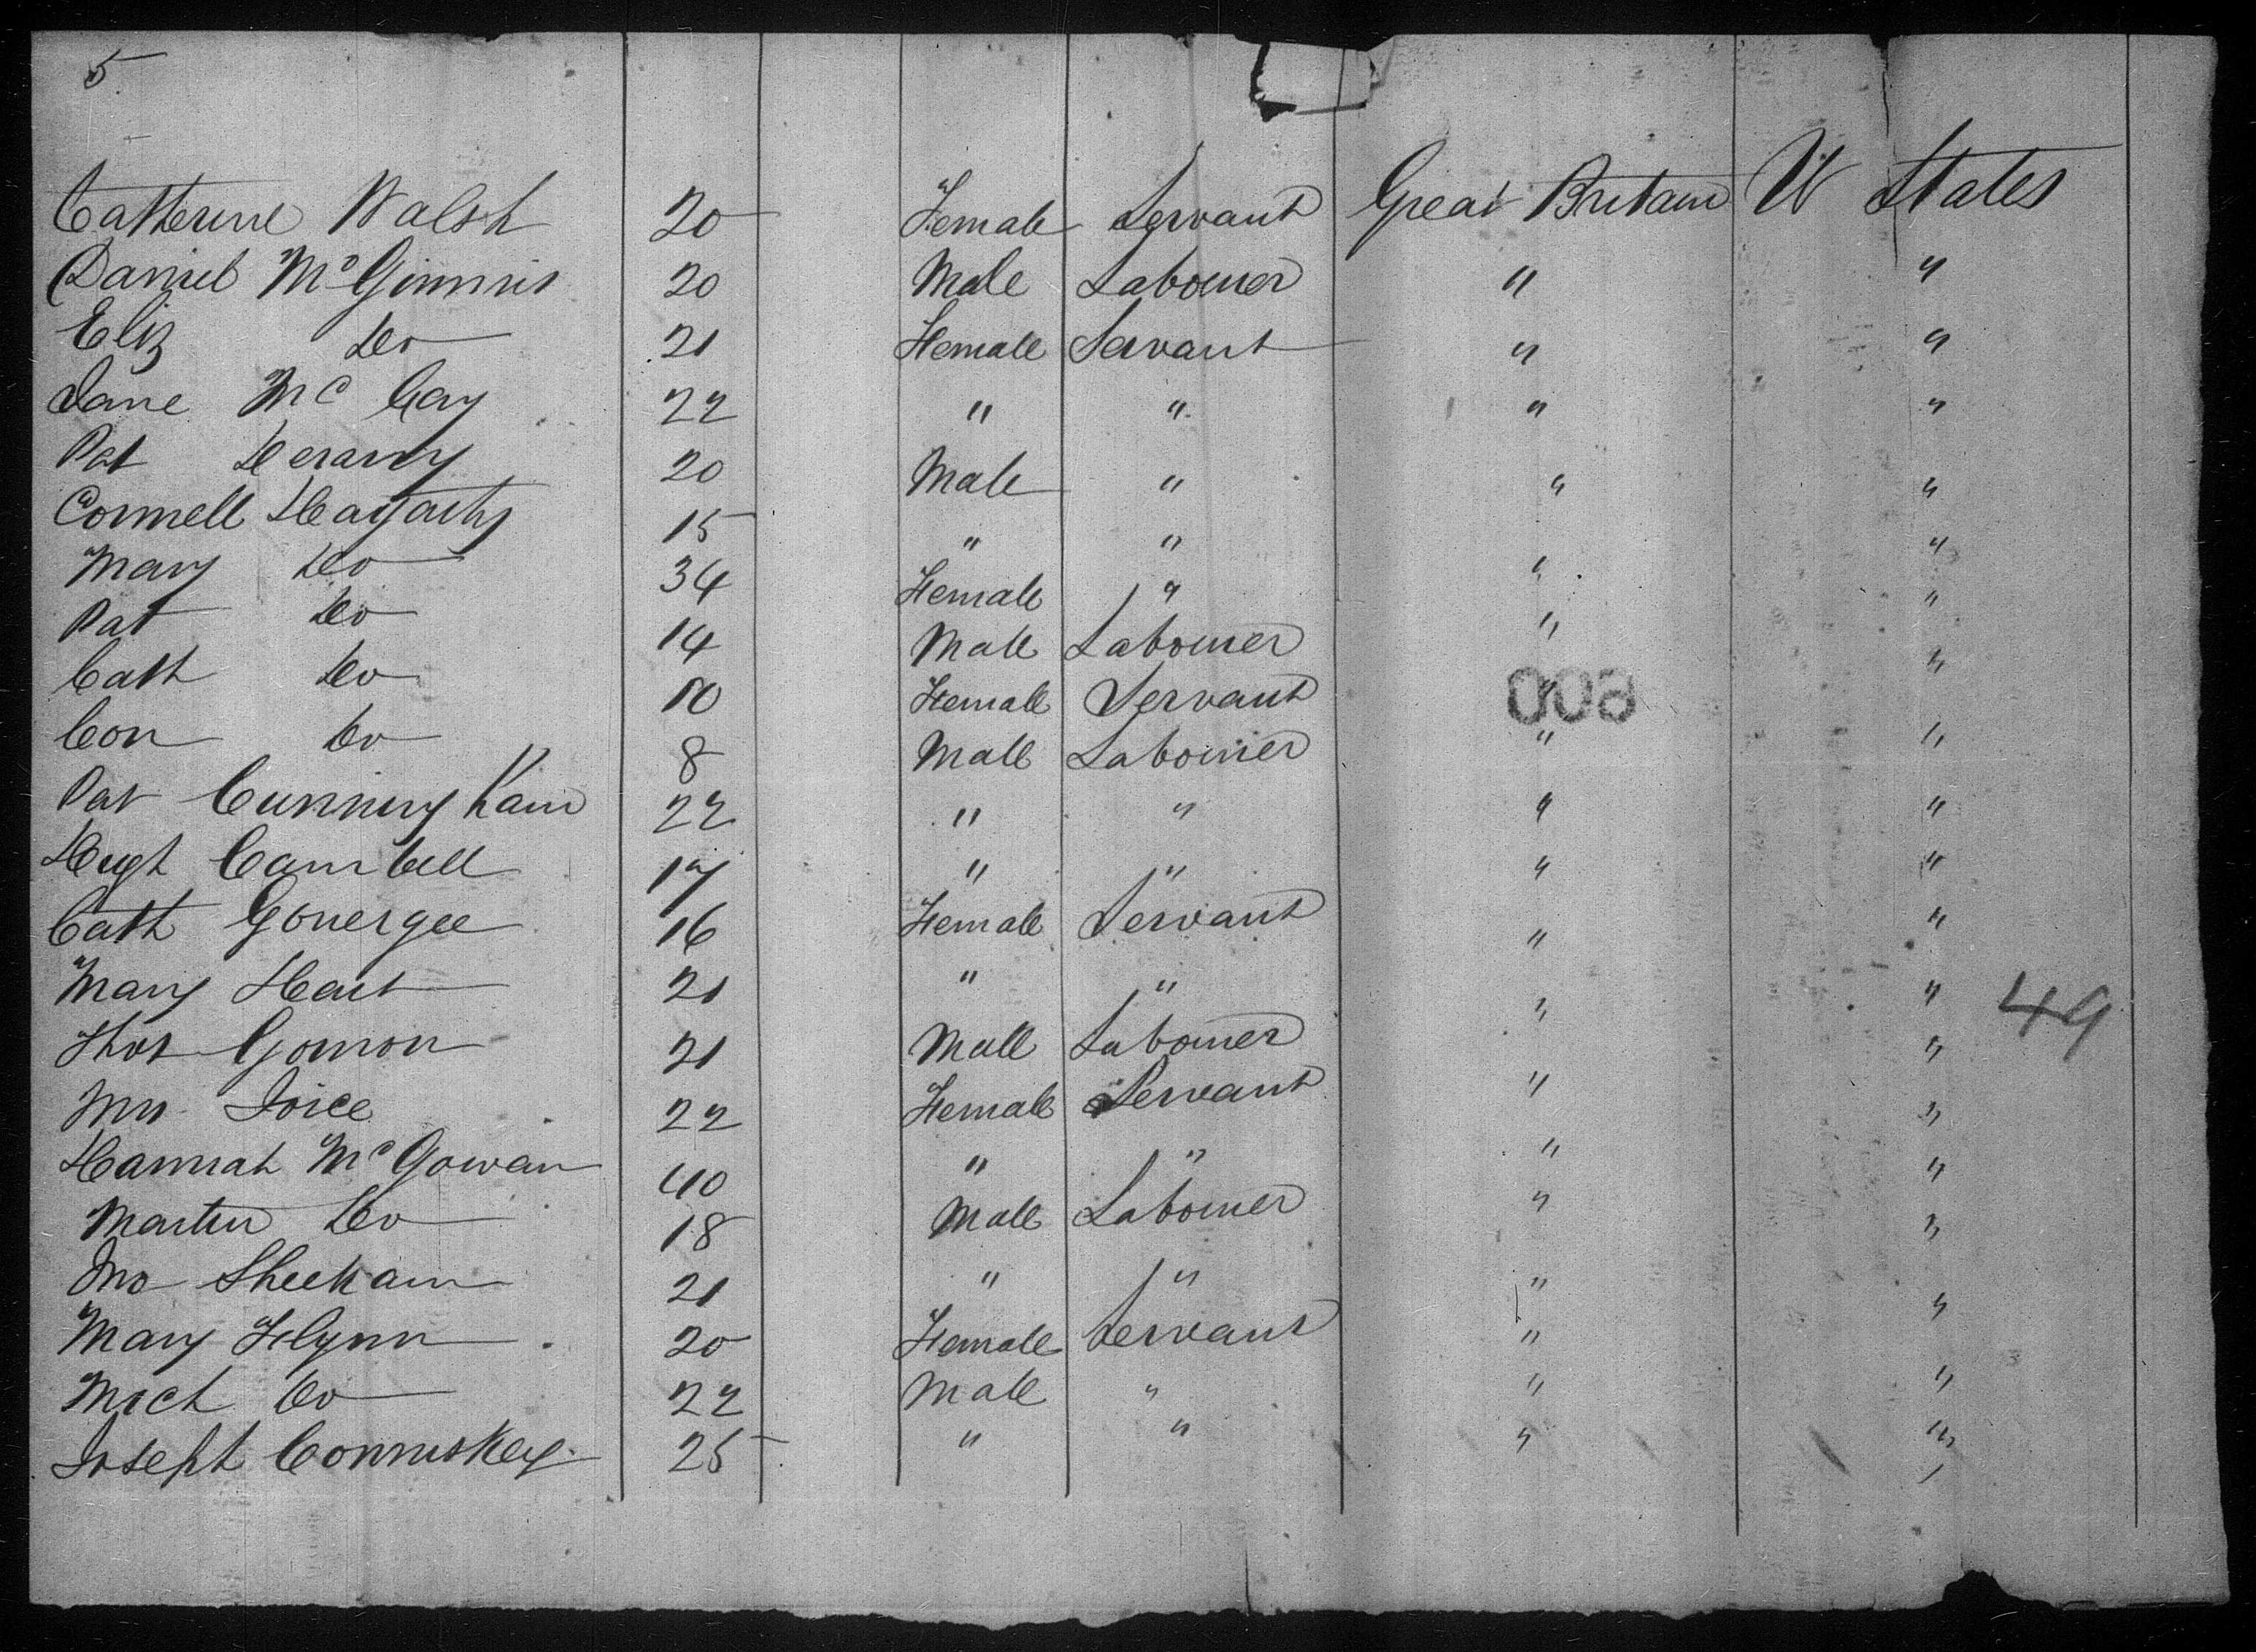 5
Catherine Walsh 20 Female Servant Great Britain U States
Daniel McGinnis 20 Male Labourer " "
Eliz Do 21 Female Servant " "
Jane McCay 22 " " " "
Pat 20 Male " " "
Connell Hagarty 15 " " " "
Mary Do 34 Female " " "
Pat Do 14 Male Labourer " "
Cath Do 10 Female Servant " "
Con Do 8 Male Labourer " "
Pat Cunningham 22 " " " "
Hugh Cambell 17 " " " "
Cath 16 Female Servant " "
Mary Hart 21 " " " "
Thos Gorman 21 Male Labourer " "
Mrs Joice 22 Female Servant " "
Hannah McGowan 40 " " " "
Martin Do 18 Male Labourer " "
Jno Sheehan 21 " " " "
Mary Flynn 20 Female Servant " "
Mich Do 22 Male " " "
Joseph Commiskey 25 " " " "
49